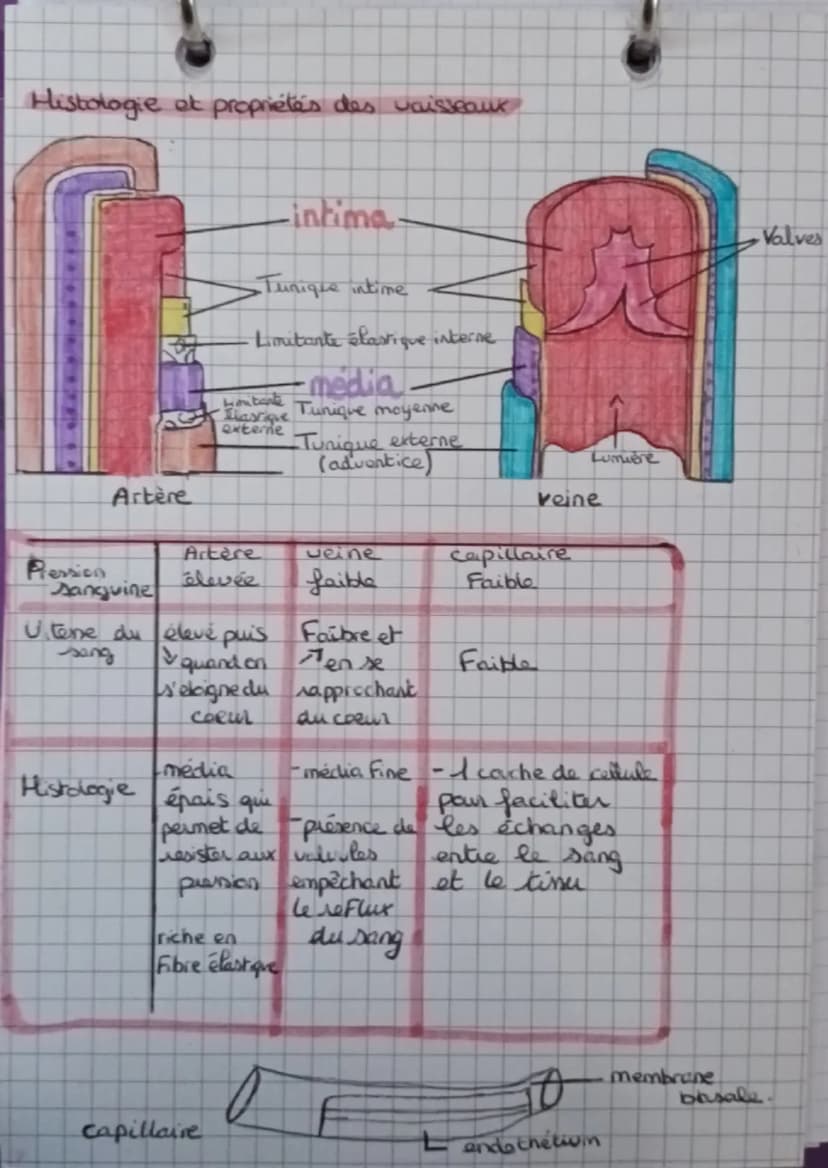 Histologie et propriétés des vaisseaux
intima
Valves
Tunique intime
Limitante élastique interne
média
Limitante
élastique
externe
Tunique moyenne
Tunique externe
(adventice)
Lumière
Artère
veine
Artère
veine
capillaire
Pression
sanguine
élevée
faible
Faible
Vitesse du
sang
élevé puis
↓ quand on
s'eloigne du
coeur
Faibre et
↗ en se
rapprochant
du coeur
Faible
Histologie
-média
épais qui
permet de
resister aux
pression
riche en
Fibre élastique
-média Fine
-présence de
valvules
empêchant
le reflux
du sang
- 1 couche de cellule
pour faciliter
les échanges
entre le sang
et le tissu
membrane
basale.
capillaire
endothélium